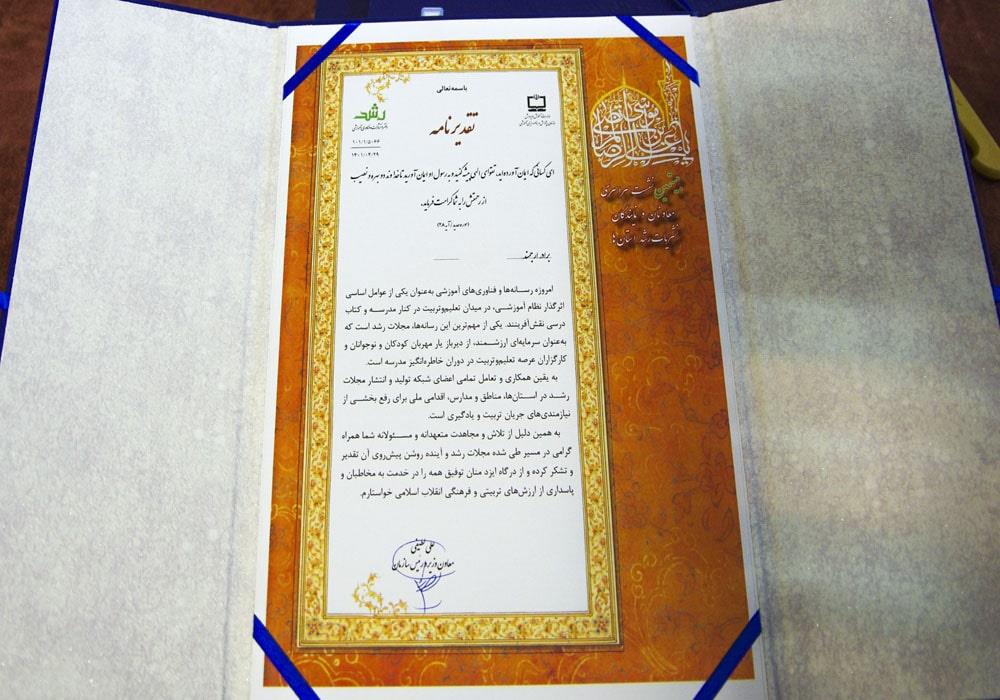 باسمه‌تعالی
رشد
تقدیرنامه
۱۰۱/۱/۵۰۴۶
۱۴۰۱/۰۳/۲۹
ای کسانی که ایمان آورده‌اید، تقوای الهی پیشه کنید و به رسول او ایمان آورید تا خداوند دو بهره و نصیب
از رحمتش را به شما کرامت فرماید.
(سوره حدید/ آیه ۲۸)
برادر ارجمند
امروزه رسانه‌ها و فناوری‌های آموزشی به‌عنوان یکی از عوامل اساسی
اثرگذار نظام آموزشی، در میدان تعلیم‌وتربیت در کنار مدرسه و کتاب
درسی نقش‌آفرینند. یکی از مهم‌ترین این رسانه‌ها، مجلات رشد است که
به‌عنوان سرمایه‌ای ارزشمند، از دیرباز یار مهربان کودکان و نوجوانان و
کارگزاران عرصه تعلیم‌وتربیت در دوران خاطره‌انگیز مدرسه است.
به یقین همکاری و تعامل تمامی اعضای شبکه تولید و انتشار مجلات
رشد در استان‌ها، مناطق و مدارس، اقدامی ملی برای رفع بخشی از
نیازمندی‌های جریان تربیت و یادگیری است.
به همین دلیل از تلاش و مجاهدت متعهدانه و مسئولانه شما همراه
گرامی در مسیر طی شده مجلات رشد و آینده روشن پیش‌روی آن تقدیر
و تشکر کرده و از درگاه ایزد منان توفیق همه را در خدمت به مخاطبان و
پاسداری از ارزش‌های تربیتی و فرهنگی انقلاب اسلامی خواستارم.
علی لطیفی
معاون وزیر و رئیس سازمان
نشست سراسری
معاونان و نمایندگان
نشریات رشد استان‌ها